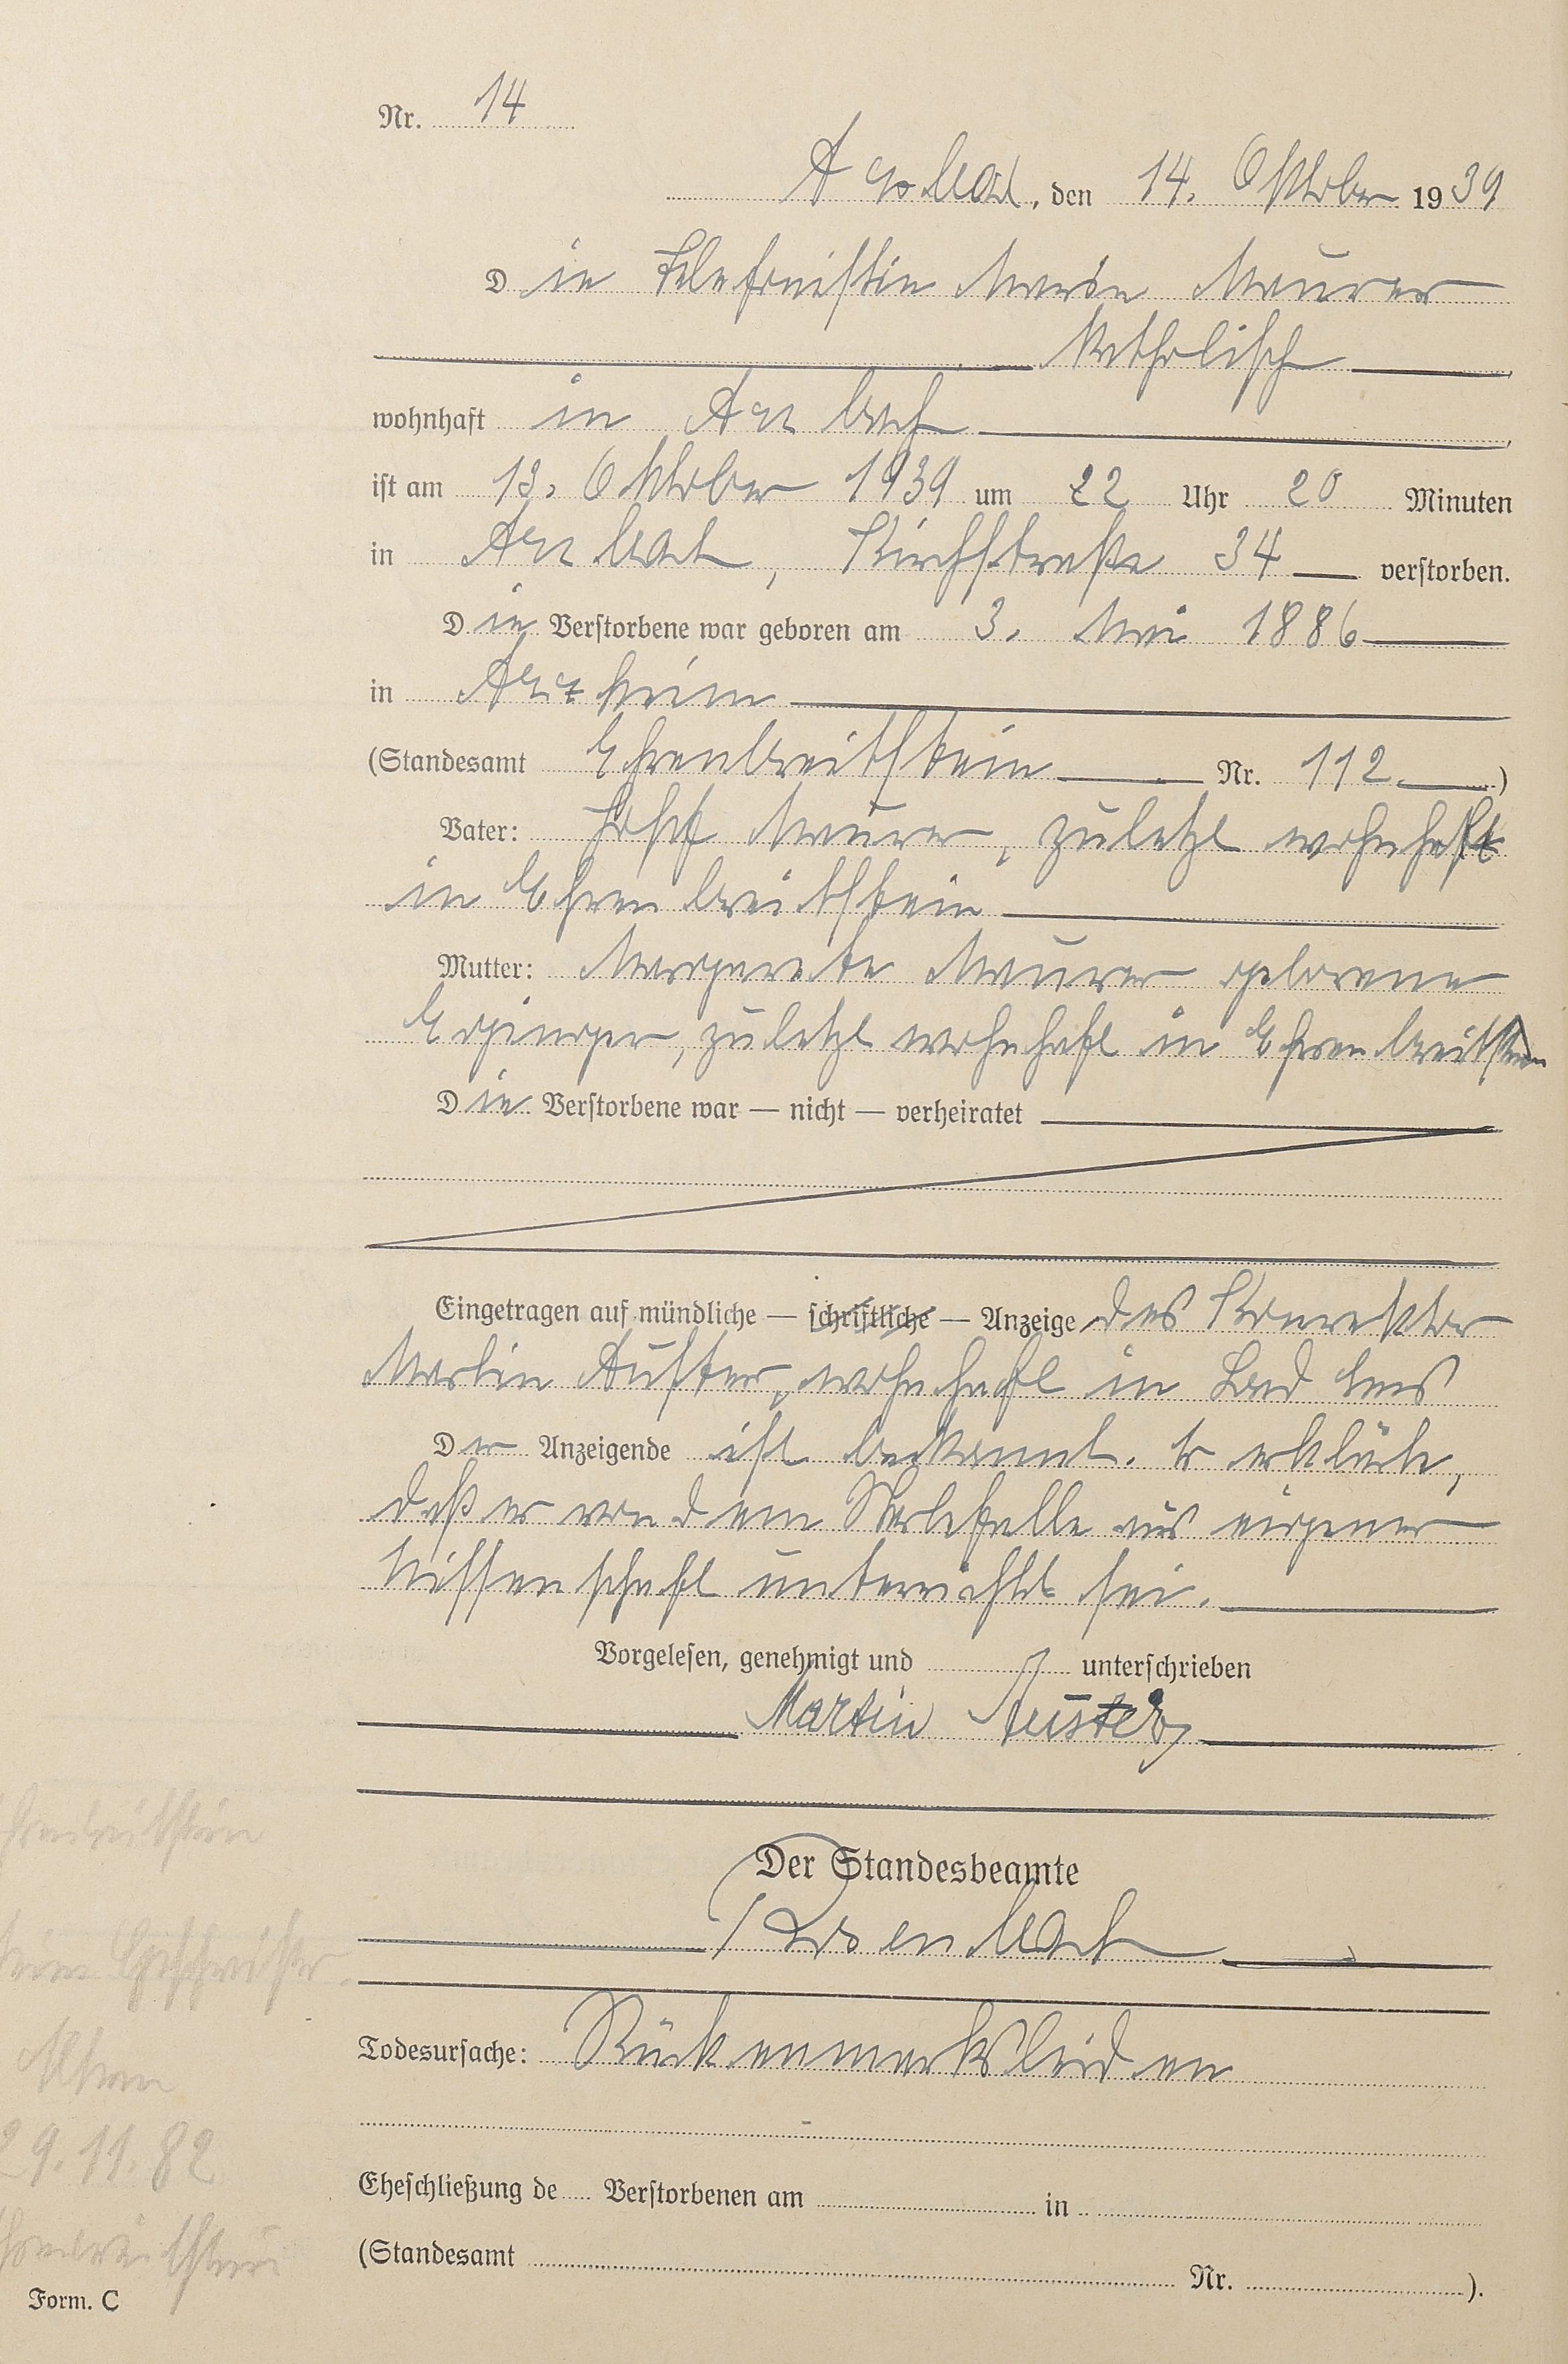 Nr. 14
Arzbach, den 14. Oktober 1939
Die Telefonistin Maria Maurer
katholisch
wohnhaft in Arzbach
ist am 13. Oktober 1939 um 22 Uhr 20 Minuten
in Arzbach, Kirchstraße 34 verstorben.
Die Verstorbene war geboren am 3. Mai 1886
in Arzheim
(Standesamt Ehrenbreitstein Nr. 112)
Vater: Josef Maurer, zuletzt wohnhaft
in Ehrenbreitstein
Mutter: Margarete Maurer geborene
Eginger, zuletzt wohnhaft in Ehrenbreitstein
Die Verstorbene war — nicht — verheiratet
Eingetragen auf mündliche — schriftliche — Anzeige des Konrektor
Martin Auster, wohnhaft in Bad Ems
Der Anzeigende ist bekannt. Er erklärte,
daß er von dem Sterbefalle aus eigener
Wissenschaft unterrichtet sei.
Vorgelesen, genehmigt und unterschrieben
Martin Auster
Der Standesbeamte
Todesursache: Rückenmarksleiden
Eheschließung de Verstorbenen am in
(Standesamt Nr. ).
29.11.82
Form. C